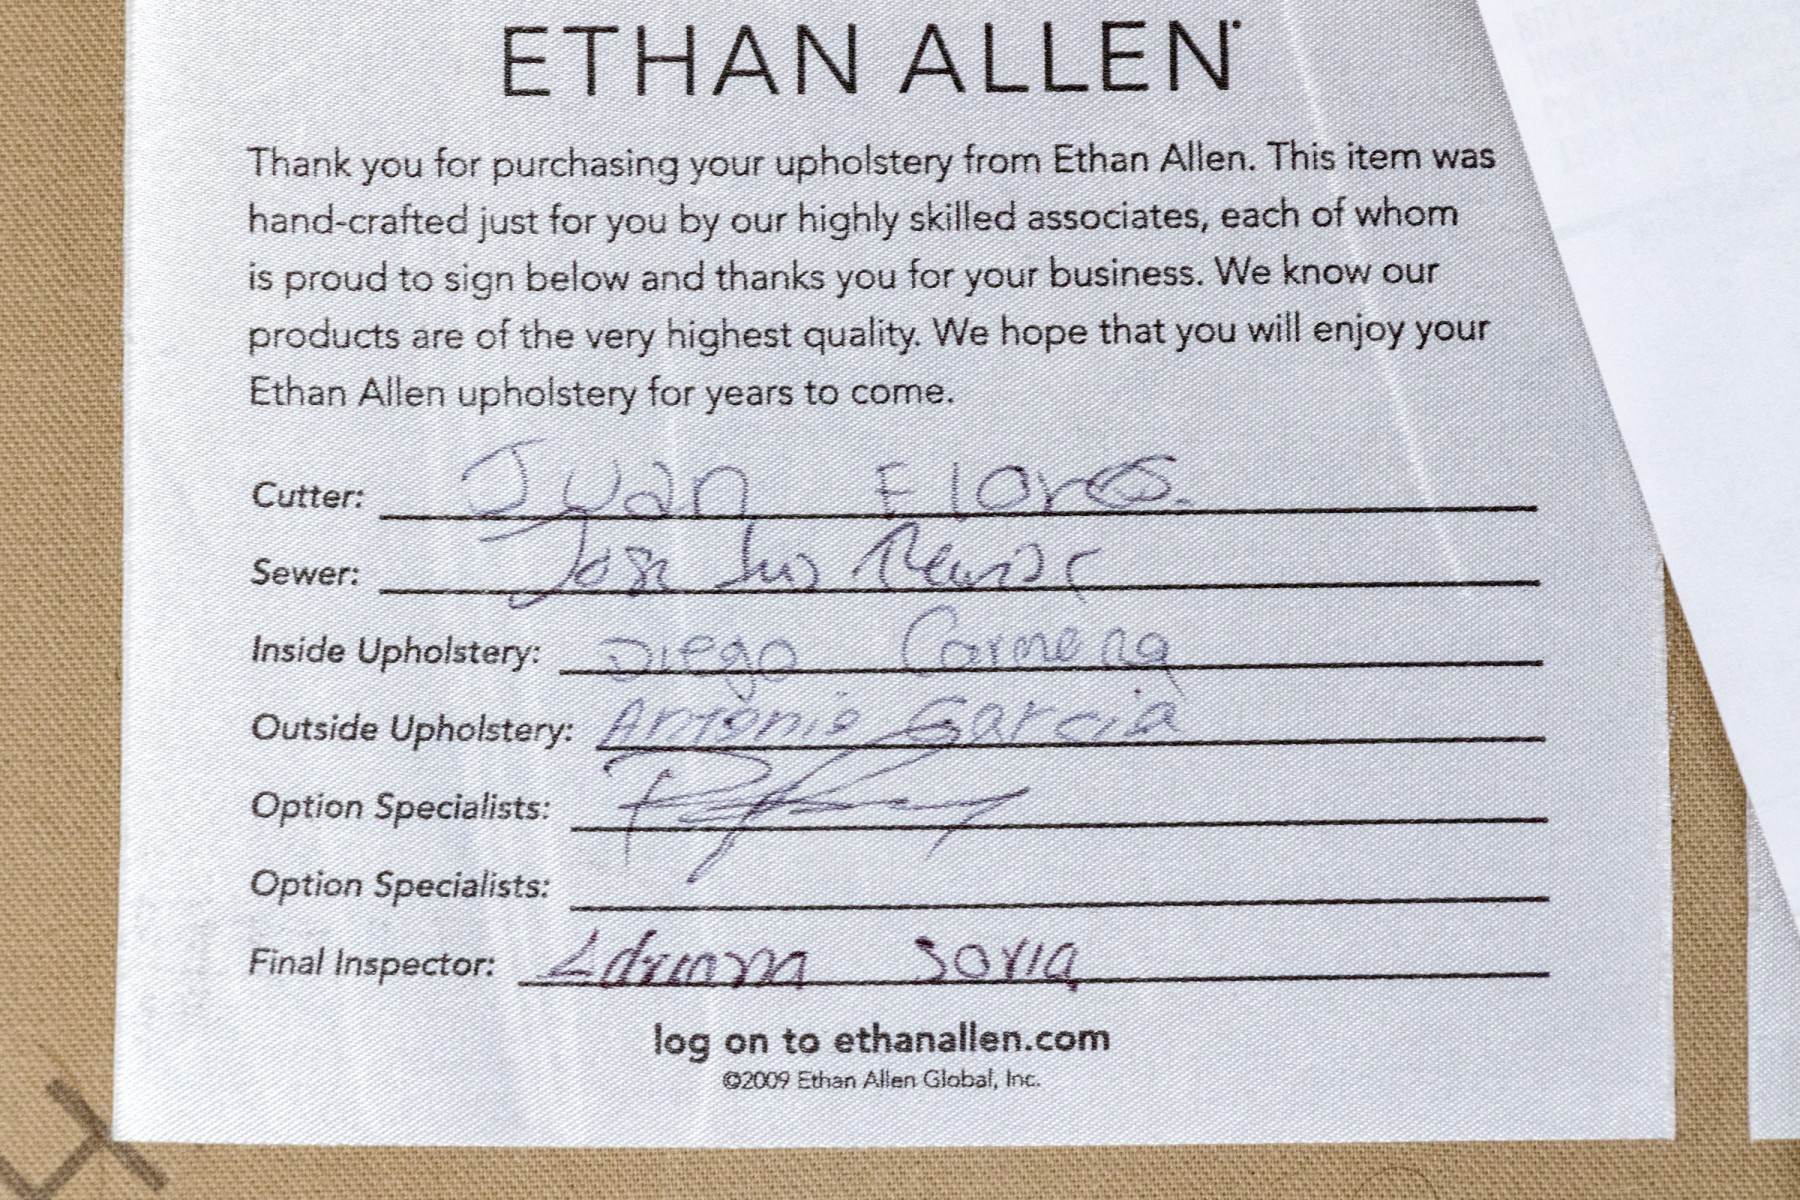 ETHAN ALLEN
Thank you for purchasing your upholstery from Ethan Allen. This item was
hand-crafted just for you by our highly skilled associates, each of whom
is proud to sign below and thanks you for your business. We know our
products are of the very highest quality. We hope that you will enjoy your
Ethan Allen upholstery for years to come.
Cutter: Juan Flores.
Sewer: Jose Luis
Inside Upholstery: Diego
Outside Upholstery: Antonio Garcia
Option Specialists:
Option Specialists:
Final Inspector: Adriana Soria
log on to ethanallen.com
©2009 Ethan Allen Global, Inc.